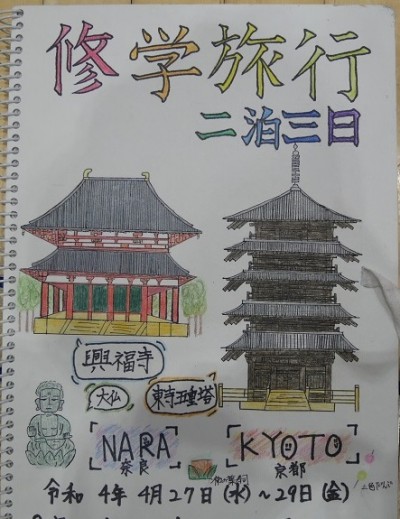 修学旅行
二泊三日
興福寺
大仏
東寺五重塔
NARA
奈良
KYOTO
京都
令和 4年 4月 27日 (水) ~ 29日 (金)